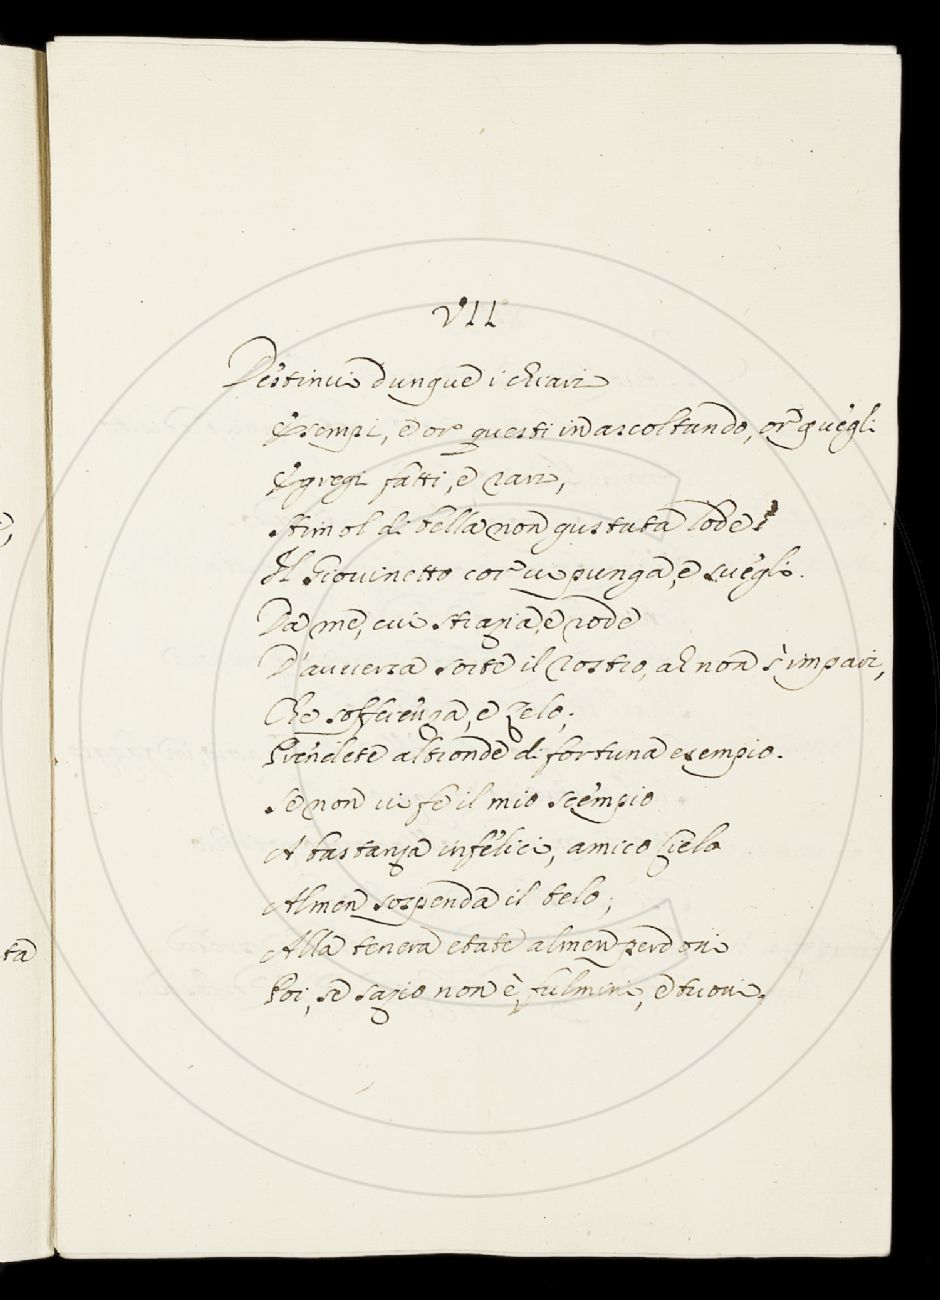 VII
Destinvi dunque i chiari
Esempi, e or questi in ascoltando, or quegli
Egregi fatti, e rari,
Stimol di bella non gustata lode
Il Giovinetto cor vi punga, e svegli.
Da me, cui strazia, e rode
D'avversa sorte il rostro, ah non s'impari,
Che sofferenza, e zelo;
Prendete altronde di fortuna esempio.
Se non vi fe il mio scempio
A bastanza infelici, amico Cielo
Almen sospenda il telo;
Alla tenera etate almen perdoni
Poi, se sazio non è, fulmini, e tuoni.
ta